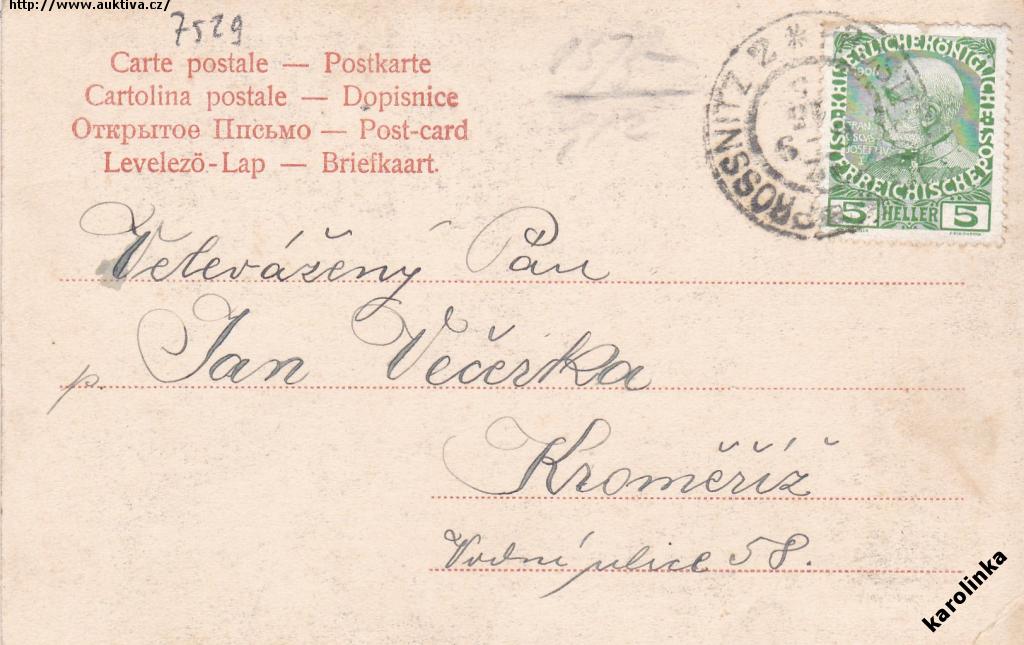 http://www.auktiva.cz/
7529
Carte postale — Postkarte
Cartolina postale — Dopisnice
Открытое Письмо — Post-card
Levelező-Lap — Briefkaart.
PROSSNITZ 2 *
KAISERLICHE KÖNIGLICHE ÖSTERREICHISCHE POST
5 HELLER 5
Velevážený Pán
p. Jan Večerka
Kroměříž
Vodní ulice 58.
karolinka